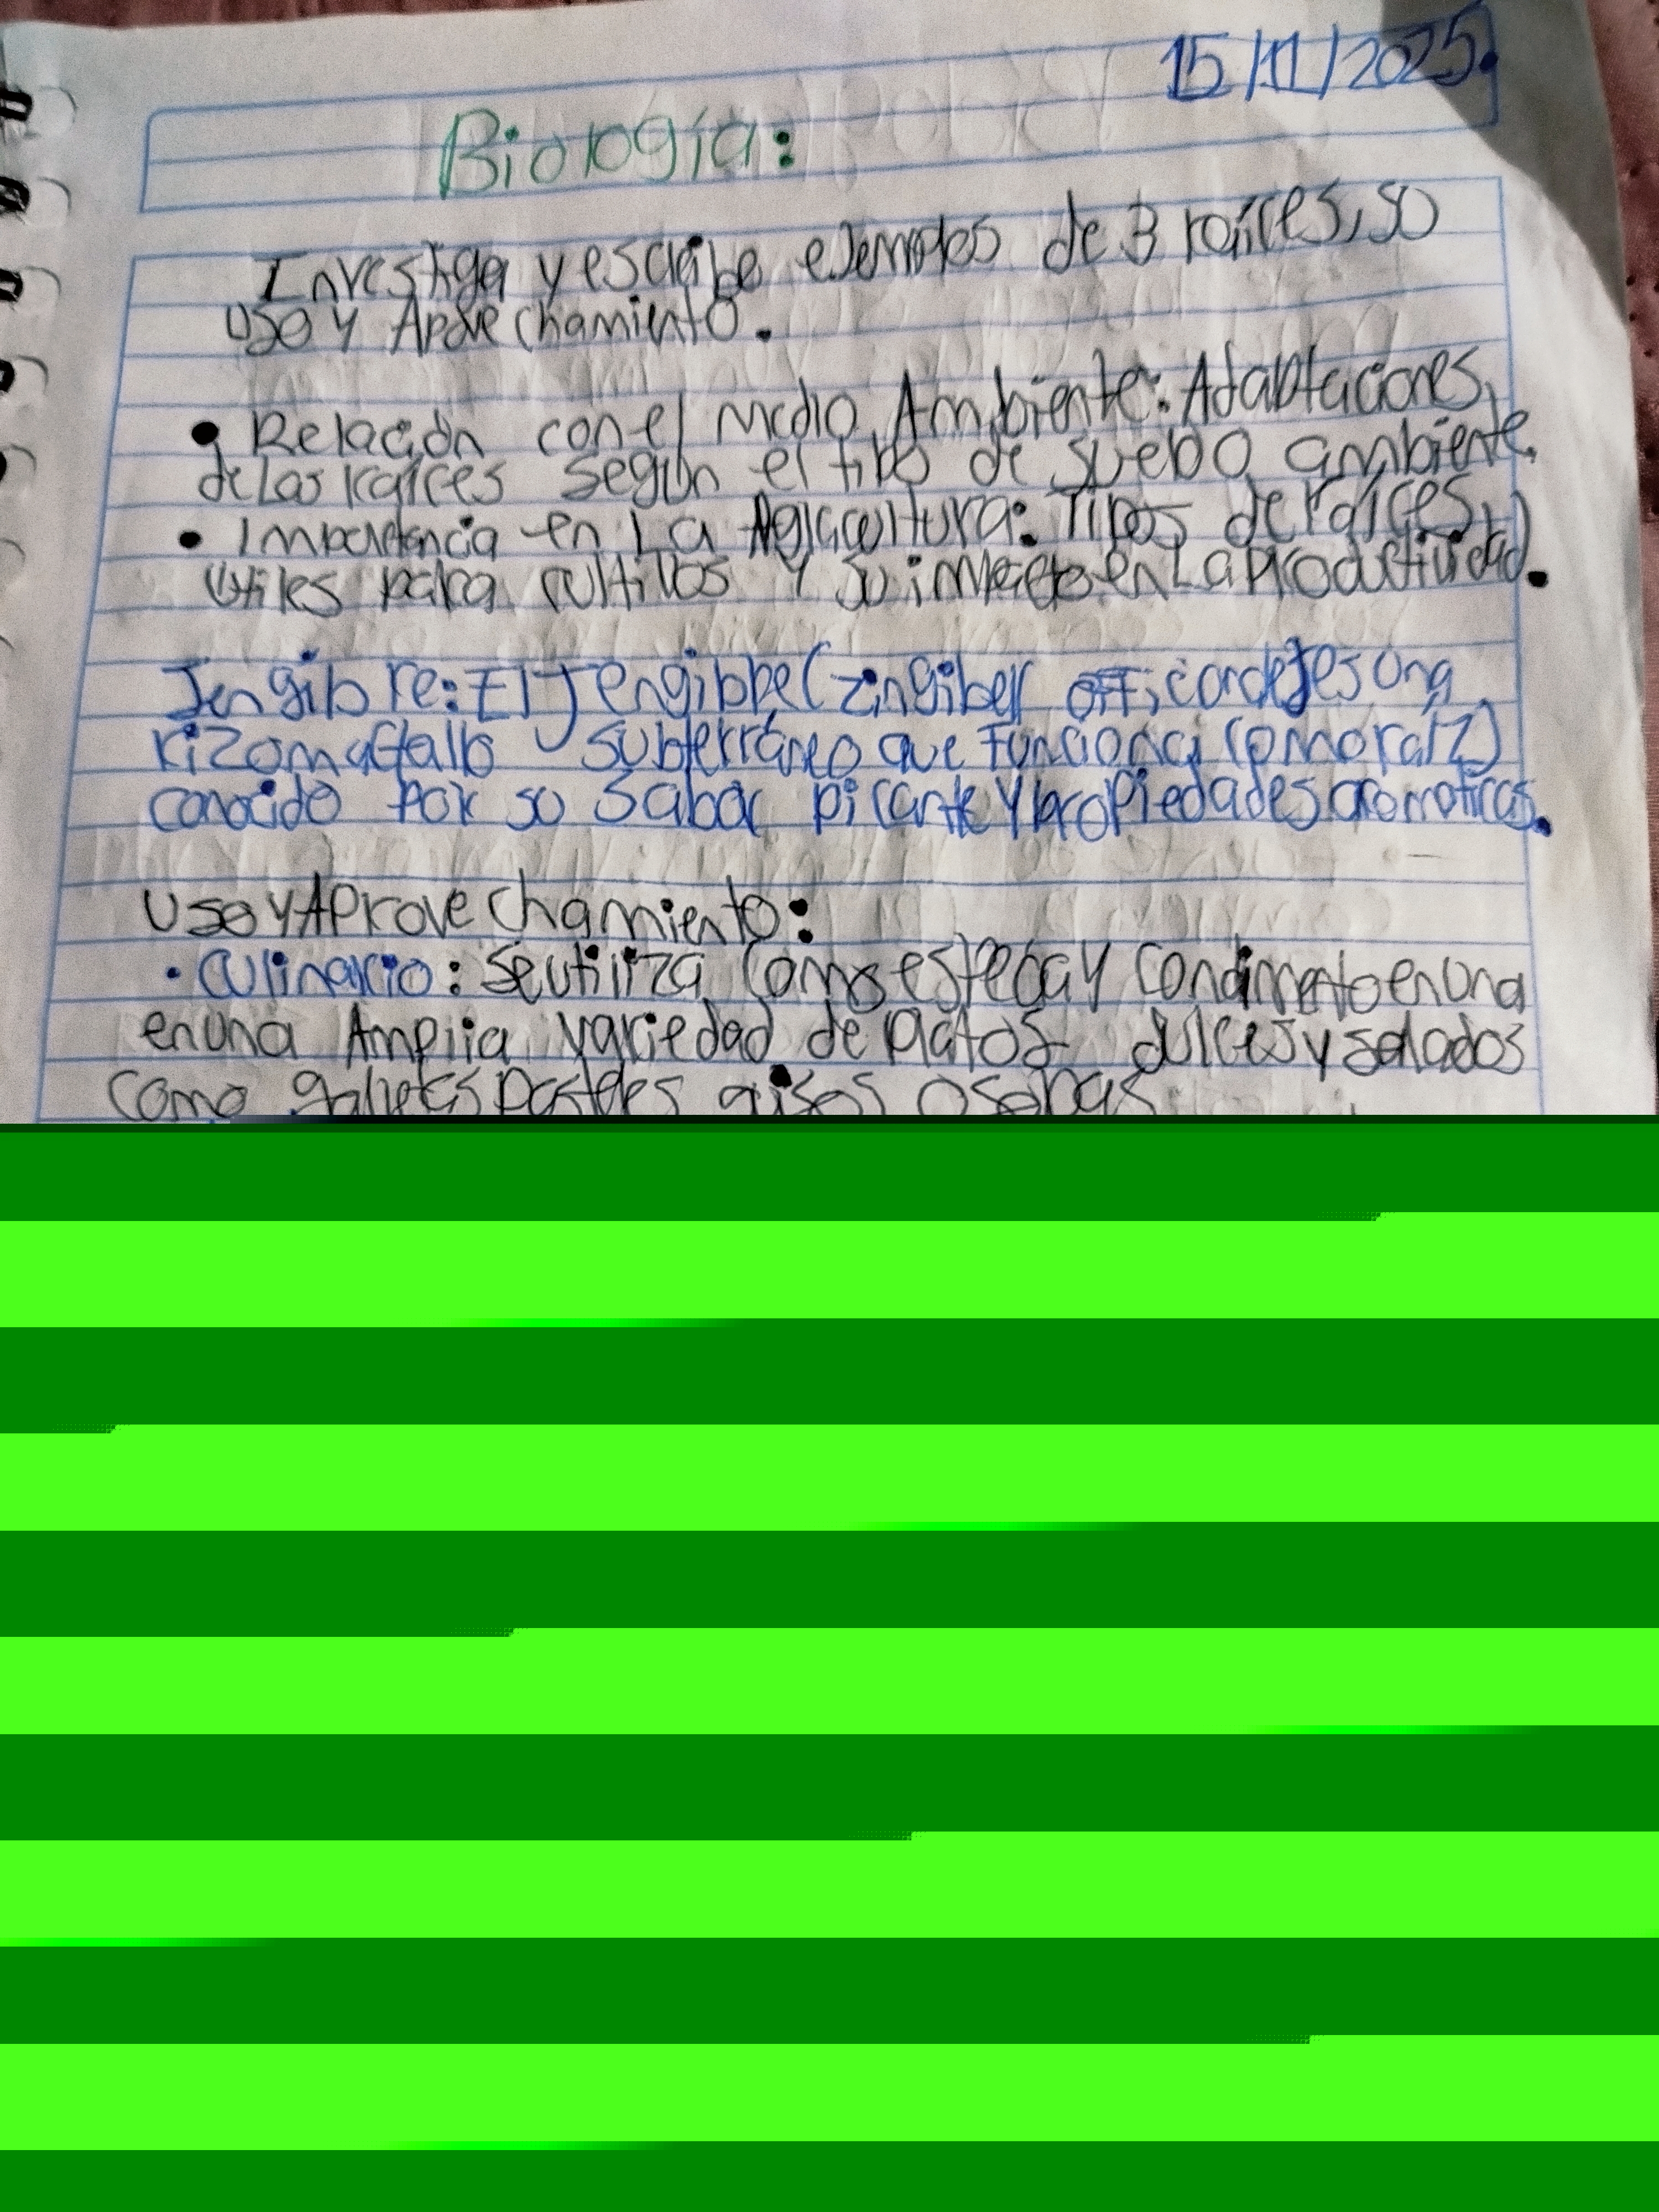 15/11/2025.
Biología:
Investiga y escribe ejemplos de 3 raíces, so
uso y Aprovechamiento.
• Relación con el medio Ambiente: Adaptaciones
de las raíces según el tipo de suelo o ambiente.
• Importancia en La Agricultura: Tipos de raíces
útiles para cultivos y su impacto en La Productividad.
Jengibre: El Jengibre (zingiber es una
rizoma (tallo subterráneo que funciona como raíz)
conocido por su sabor picante y propiedades aromaticas.
Uso y Aprovechamiento:
• Culinario: Se utiliza como especia y condimento en una
en una Amplia variedad de platos dulces y salados
como galletas pasteles guisos o sopas